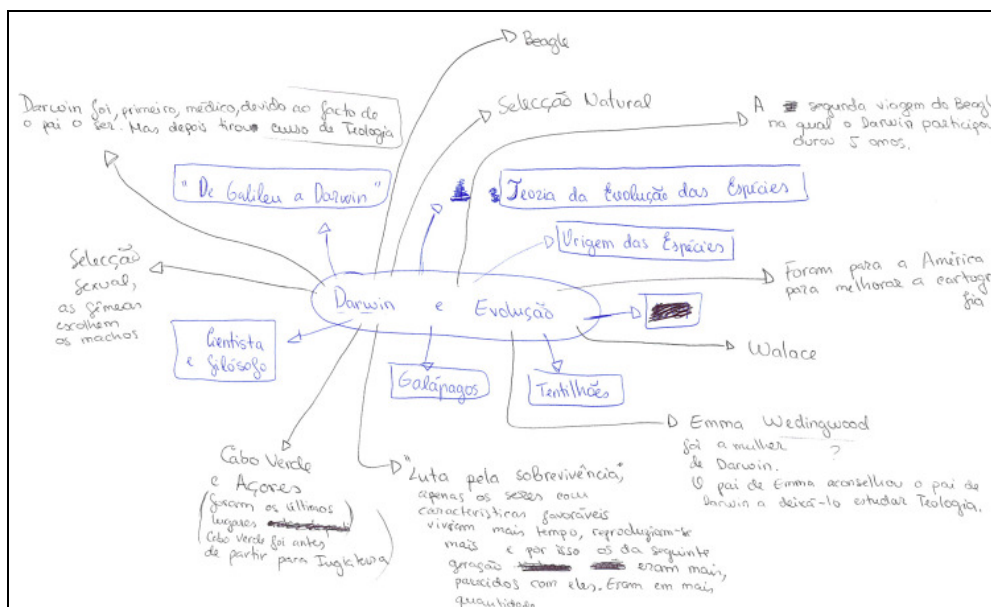 Beagle
Darwin foi, primeiro, médico, devido ao facto de
o pai o ser. Mas depois tirou curso de Teologia
Selecção Natural
A segunda viagem do Beagle
na qual o Darwin participou
durou 5 anos.
"De Galileu a Darwin"
Teoria da Evolução das Espécies
Origem das Espécies
Selecção
sexual,
as fêmeas
escolhem
os machos
Darwin e Evolução
Foram para a América
para melhorar a cartogra
fia
Cientista
e filósofo
Walace
Galápagos
Tentilhões
Emma Wedingwood
foi a mulher ?
de Darwin.
O pai de Emma aconselhou o pai de
Darwin a deixá-lo estudar Teologia.
Cabo Verde
e Açores
(foram os últimos
lugares
Cabo Verde foi antes
de partir para Inglaterra)
"Luta pela sobrevivência",
apenas os seres com
características favoráveis
viviam mais tempo, reproduziam-se
mais e por isso os da seguinte
geração eram mais,
parecidos com eles. Eram em mais
quantidade